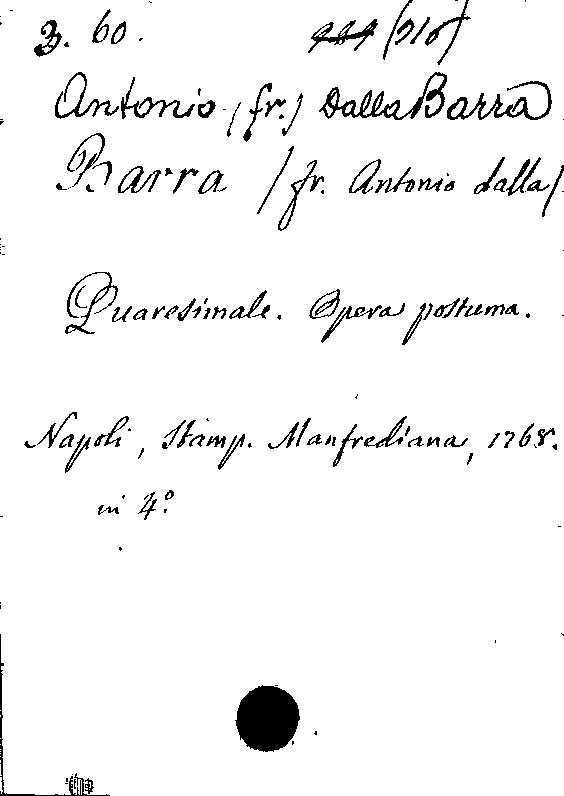 3. 60.
Antonio (fr.) Dalla Barra
Barra / fr. Antonio dalla /
Quaresimale. Opera postuma.
Napoli, Stamp. Manfrediana, 1768.
in 4º